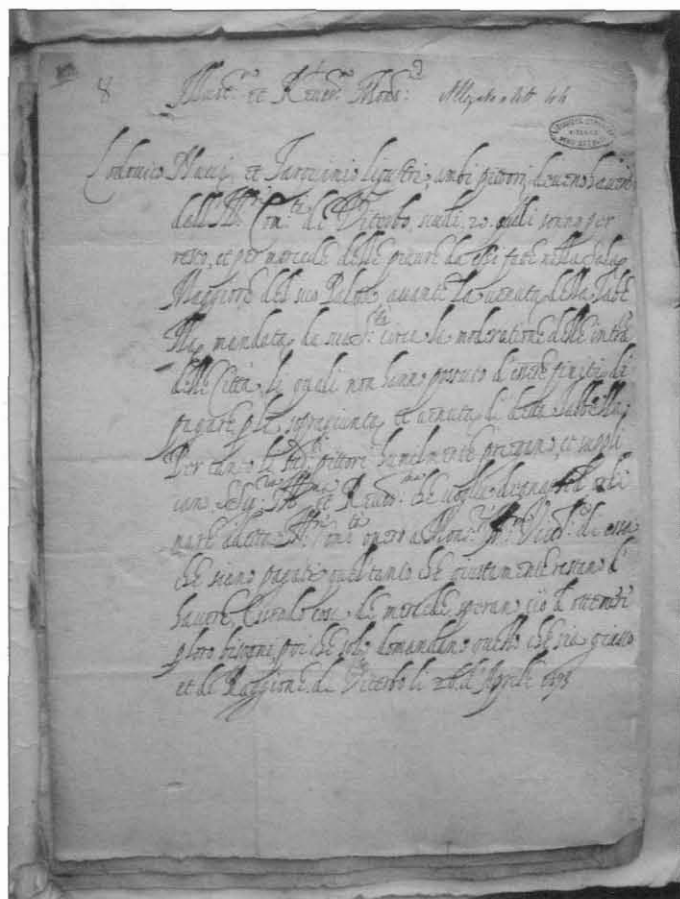 8 Illust.re et Rever.mo Mons.r
Lodovico Nucci, et Tarquinio ligustri, ambi pittori, devono havere
dall'Ill.re Com.tà di Viterbo, scudi 20. quali sonno per
resto, et per mercede delle pitture da essi fatte nella Sala
Maggiore del suo Palazzo, avanti la venuta della Tabe
lla, mandata da circa la moderatione delle intrate
delle Città, le quali non hanno possuto d'essere finiti di
pagare p la sopragiunta, et venuta di detta Tabella,
Per tanto li pittori humilmente pregano, et suppli
cano et Rever.ma che voglia degnarsi ordi
nare a detta Com.tà overo a Mons.r di essa
che siano pagati quel tanto che giustamente restano d'
havere, Essendo cosa di mercede, sperano ciò d'ottenere
p loro bisogni, poi che solo domandano quello che sia giusto
et di Raggione. di Viterbo li d'Aprile